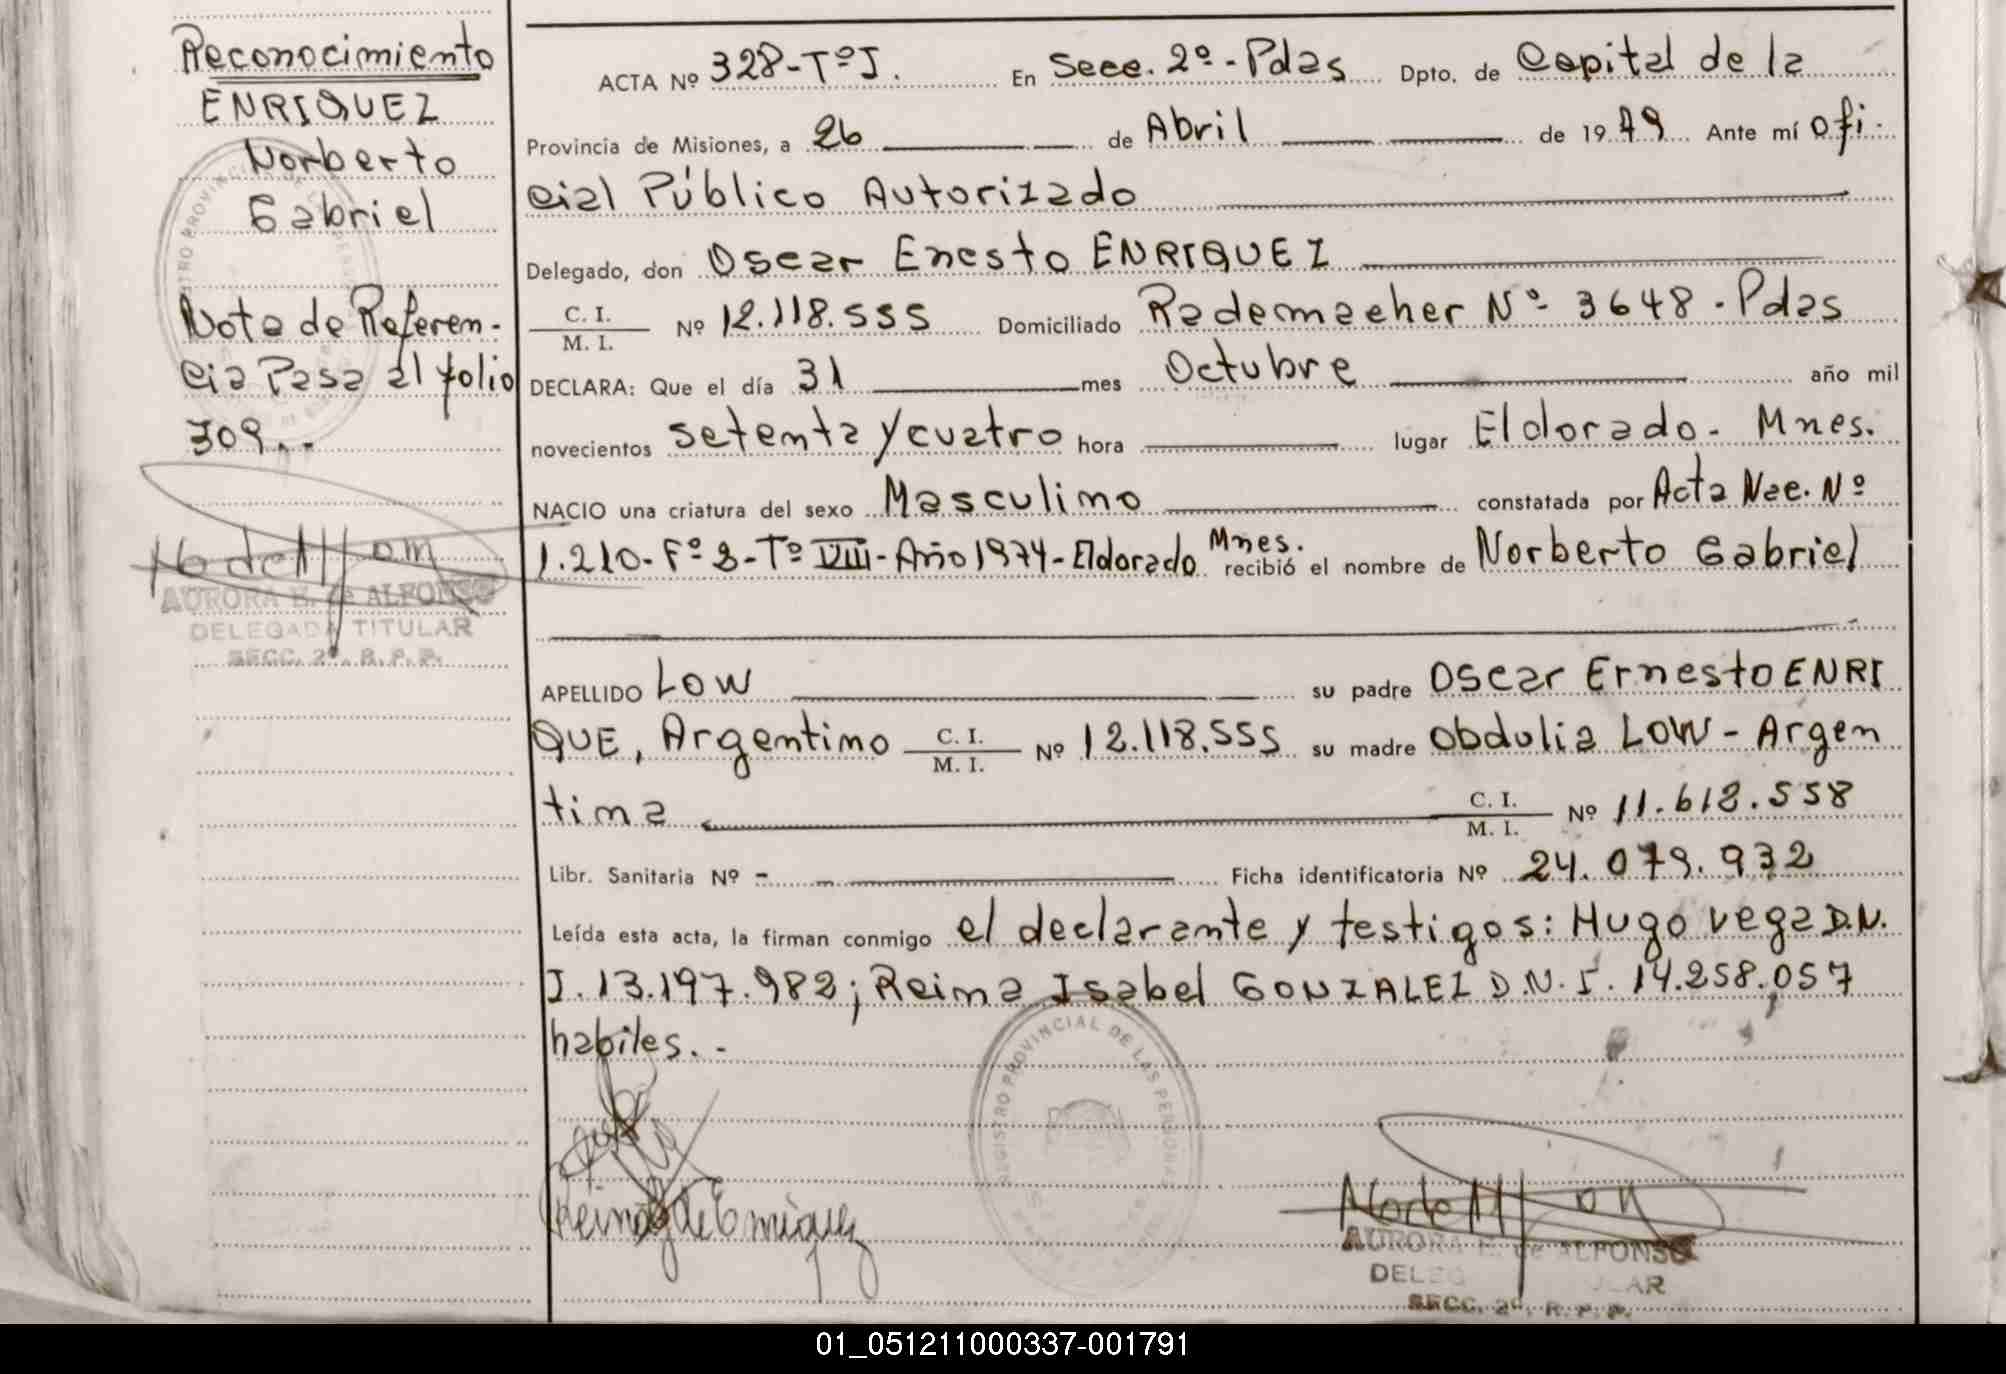 Reconocimiento
ENRIQUEZ
Norberto
Gabriel
Nota de Referen-
cia Pasa al folio
309..
AURORA E. de ALFONSO
DELEGADA TITULAR
SECC. 2ª. R. P. P.
ACTA Nº 328-TºI. En Secc. 2º.-Pdas Dpto. de Capital de la
Provincia de Misiones, a 26 de Abril de 1979 Ante mí Ofi-
cial Público Autorizado
Delegado, don Oscar Enesto ENRIQUEZ
C. I. / M. I. Nº 12.118.555 Domiciliado Rademacher Nº 3648-Pdas
DECLARA: Que el día 31 mes Octubre año mil
novecientos setenta y cuatro hora lugar Eldorado- Mnes.
NACIO una criatura del sexo Masculino constatada por Acta Nac. Nº
1.210-Fº 8-Tº VIII-Año 1974-Eldorado Mnes. recibió el nombre de Norberto Gabriel
APELLIDO LOW su padre Oscar Ernesto ENRI
QUE, Argentino C. I. / M. I. Nº 12.118.555 su madre Obdulia LOW-Argen
tina C. I. / M. I. Nº 11.618.558
Libr. Sanitaria Nº - Ficha identificatoria Nº 24.079.932
Leída esta acta, la firman conmigo el declarante y testigos: Hugo vega D.N.
I.13.197.982; Reina Isabel GONZALEZ D.N.I. 14.258.057
habiles.-
REGISTRO PROVINCIAL DE LAS PERSONAS
Reina G de Enriquez
AURORA E. de ALFONSO
SECC. 2ª. R. P. P.
01_051211000337-001791